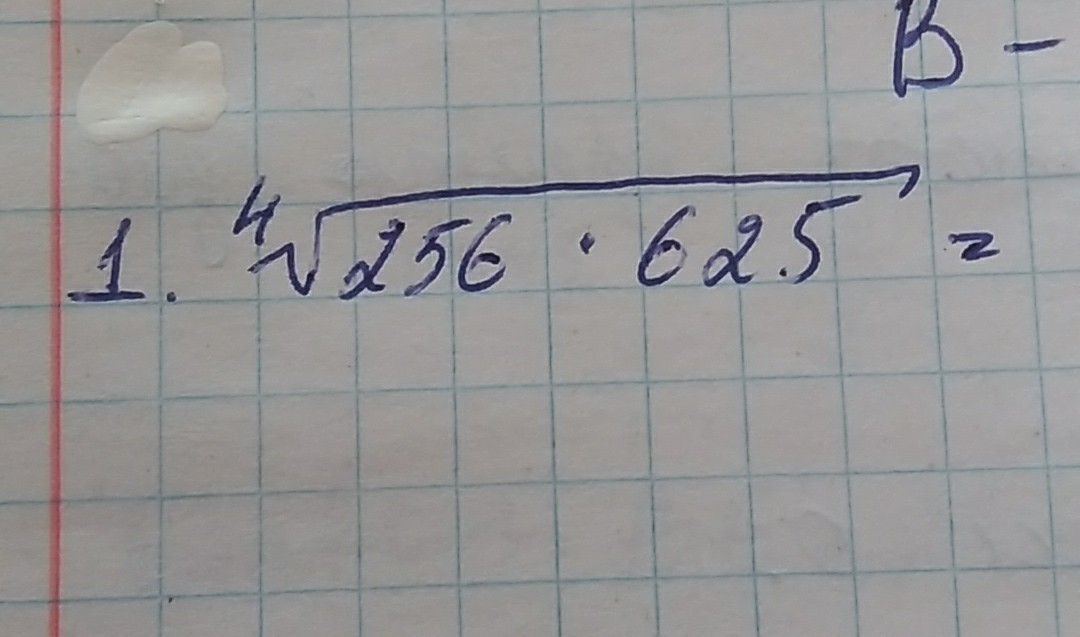 В -
1. ⁴√256 · 625 =